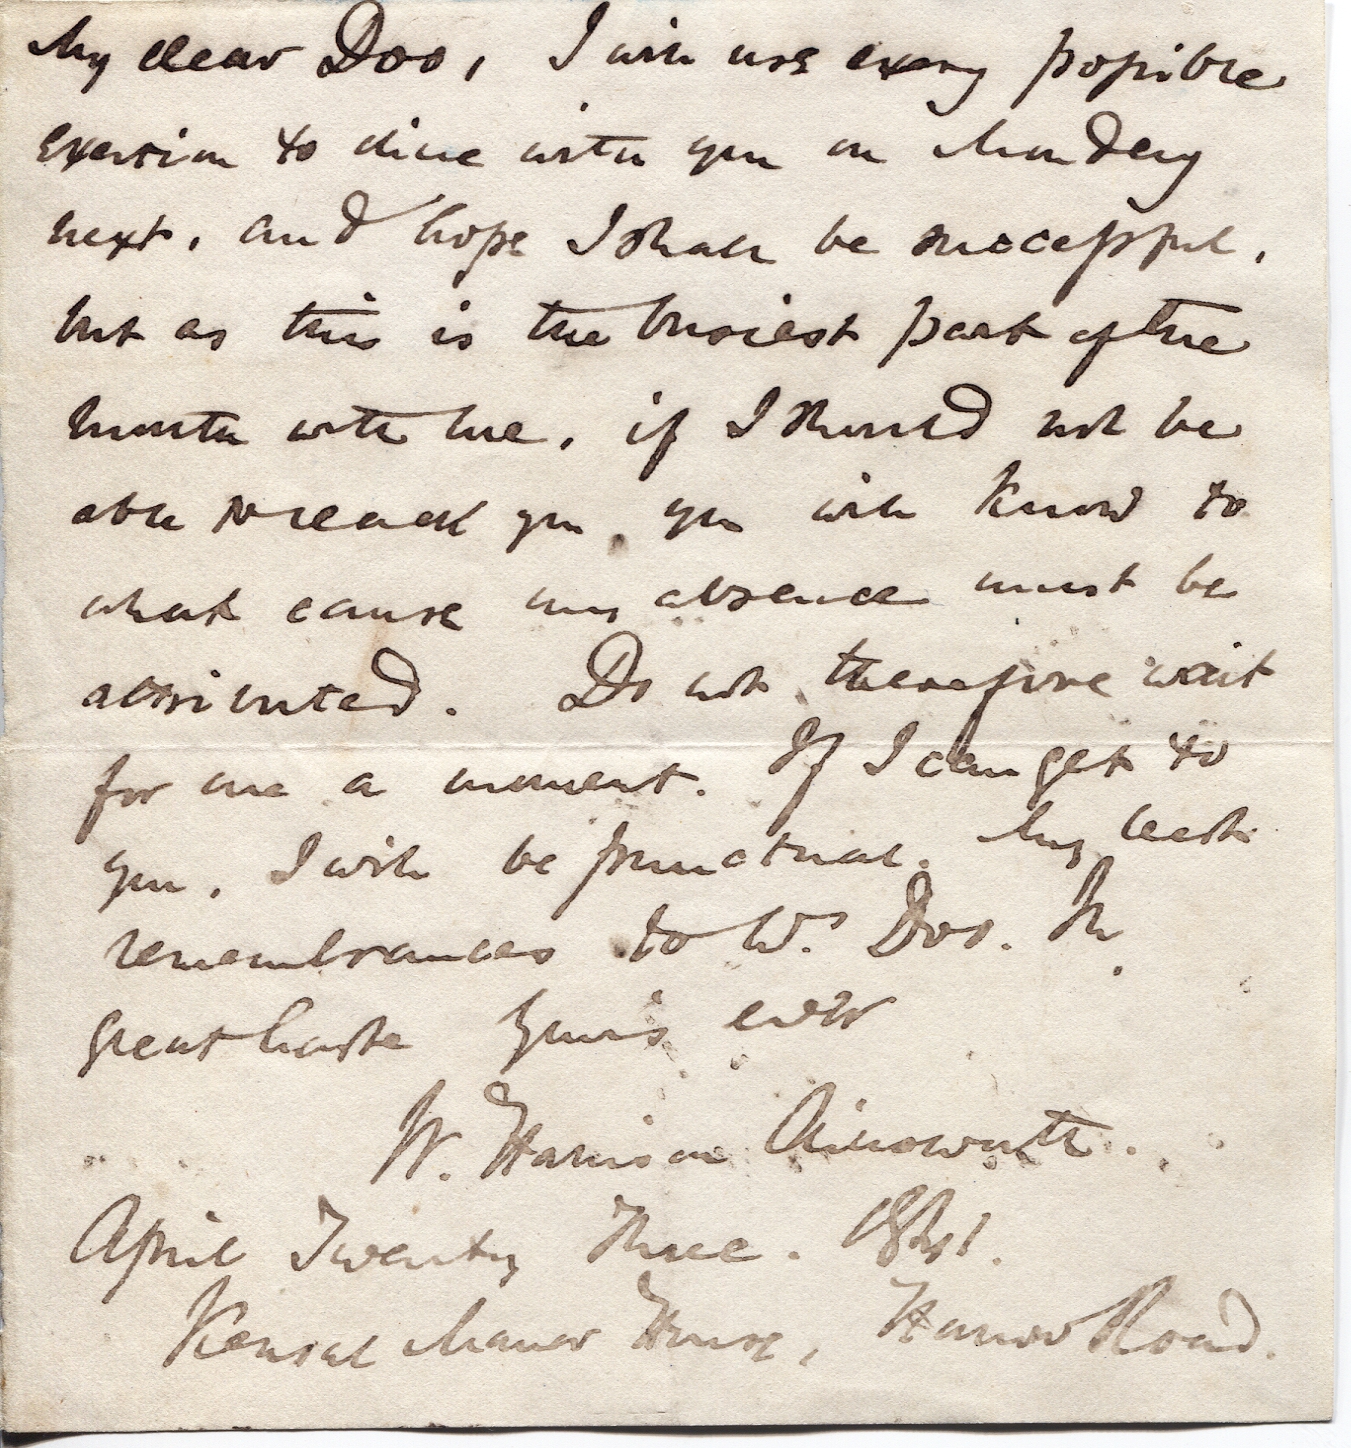 My dear Doo, I will use every possible
exertion to dine with you on Monday
next, and hope I shall be successful,
but as this is the busiest part of the
month with me, if I should not be
able to reach you, you will know to
what cause my absence must be
attributed. Do not therefore wait
for me a moment. If I can get to
you, I will be punctual. My best
remembrances to Mrs. Doo. In
great haste Yours ever
W. Harrison Ainsworth.
April Twenty Three. 1841.
Kensal Manor House, Harrow Road.